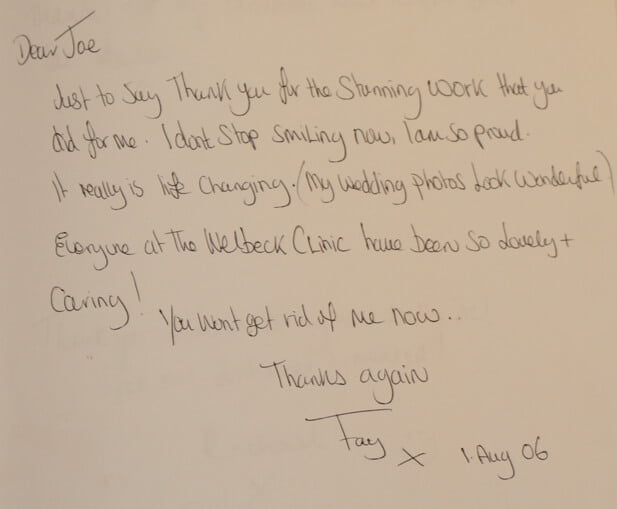 Dear Joe
Just to say Thank you for the Stunning work that you
did for me. I dont Stop smiling now, I am so proud.
It really is life changing. (My wedding photos Look wonderful)
Everyone at The Welbeck Clinic have been so Lovely +
Caring!
You wont get rid of me now..
Thanks again
Fay x 1. Aug 06